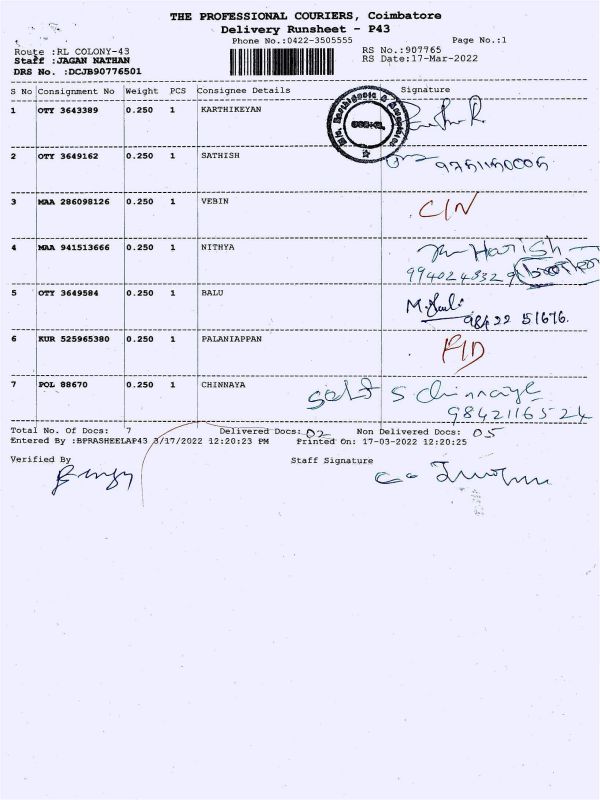 THE PROFESSIONAL COURIERS, Coimbatore
Delivery Runsheet - P43
Phone No.:0422-3505555 Page No.:1
Route :RL COLONY-43 RS No.:907765
Staff :JAGAN NATHAN RS Date:17-Mar-2022
DRS No. :DCJB90776501
S No Consignment No Weight PCS Consignee Details Signature
1 OTY 3643389 0.250 1 KARTHIKEYAN
2 OTY 3649162 0.250 1 SATHISH
3 MAA 286098126 0.250 1 VEBIN C/N
4 MAA 941513666 0.250 1 NITHYA Harish
(brother)
5 OTY 3649584 0.250 1 BALU
98422 51676.
6 KUR 525965380 0.250 1 PALANIAPPAN
7 POL 88670 0.250 1 CHINNAYA S Chinnaya
9842116524
Total No. Of Docs: 7 Delivered Docs: 02 Non Delivered Docs: 05
Entered By :BPRASHEELAP43 3/17/2022 12:20:23 PM Printed On: 17-03-2022 12:20:25
Verified By Staff Signature